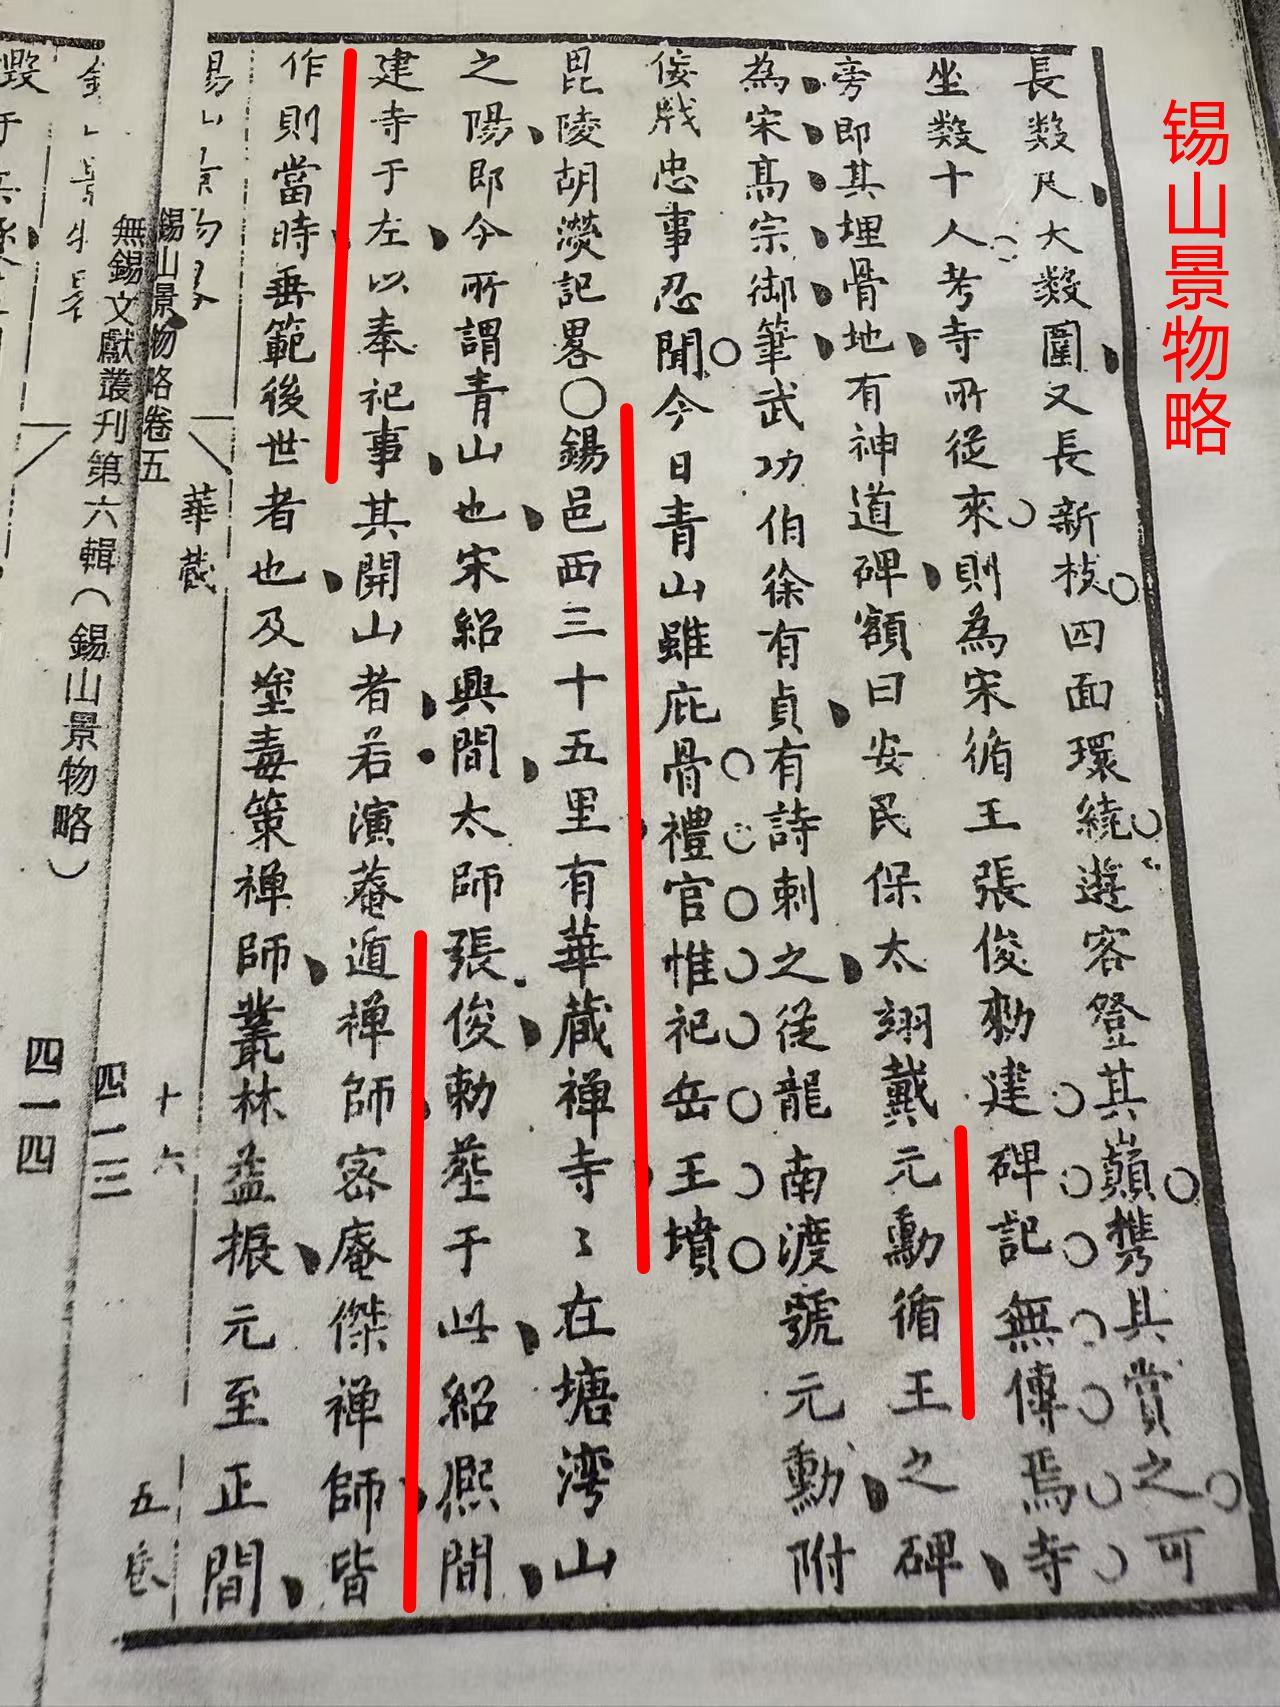 锡山景物略
長數尺大數圍又長新枝四面環繞遊客登其巔攜具賞之可
坐數十人考寺所從來則為宋循王張俊勅建碑記無傳焉寺
旁即其埋骨地有神道碑額曰安民保太翊戴元勳循王之碑
為宋髙宗御筆武功伯徐有貞有詩刺之從龍南渡號元勳附
倿戕忠事忍聞今日青山雖庇骨禮官惟祀岳王墳
毘陵胡濙記畧○錫邑西三十五里有華蔵禅寺〻在塘湾山
之陽即今所謂青山也宋紹興間太師張俊勅塟于此紹熈間
建寺于左以奉祀事其開山者若演菴遁禅師密庵傑禅師皆
作則當時垂範後世者也及塗毒策禅師叢林益振元至正間
錫山景物略卷五
華蔵
十六
五卷
無錫文獻叢刊第六輯（錫山景物略）
四一三
四一四